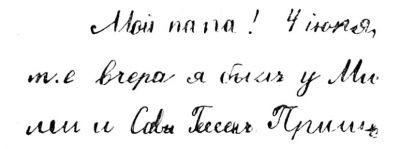 Мой папа! 4 іюня,
т.е вчера я былъ у Ми
ли и Савы Гессенъ Приш